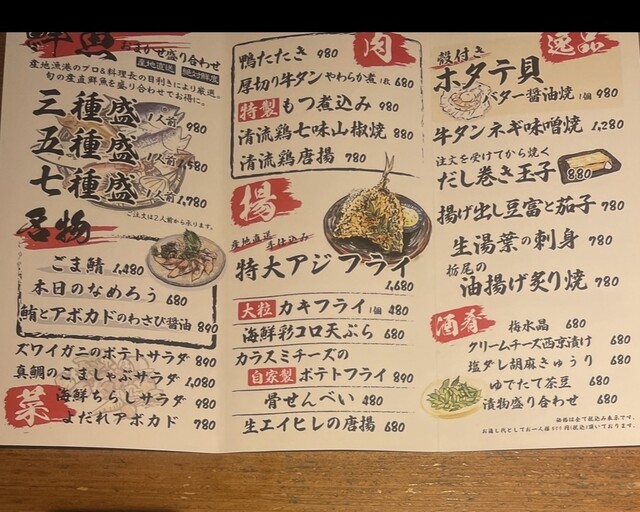 鮮魚 おまかせ盛り合わせ
産地直送 絶対鮮度
産地漁港のプロ&料理長の目利きにより厳選。
旬の産直鮮魚を盛り合わせでお得に。
三種盛 1人前 980
五種盛 1人前 1,580
七種盛 1人前 1,780
ご注文は2人前から承ります。
名物
ごま鯖 1,480
本日のなめろう 680
鮪とアボカドのわさび醤油 890
菜
ズワイガニのポテトサラダ 890
真鯛のごましゃぶサラダ 1,080
海鮮ちらしサラダ 980
よだれアボカド 780
肉
鴨たたき 980
厚切り牛タンやわらか煮 1枚 680
特製 もつ煮込み 980
清流鶏七味山椒焼 880
清流鶏唐揚 780
揚
産地直送 手仕込み
特大アジフライ
1,680
大粒 カキフライ 1個 480
海鮮彩コロ天ぷら 680
カラスミチーズの
自家製 ポテトフライ 890
骨せんべい 480
生エイヒレの唐揚 680
逸品
殻付き
ホタテ貝
バター醤油焼 1個 980
牛タンネギ味噌焼 1,280
注文を受けてから焼く
だし巻き玉子 880
揚げ出し豆富と茄子 780
生湯葉の刺身 780
栃尾の
油揚げ炙り焼 780
酒肴
梅水晶 680
クリームチーズ西京漬け 680
塩ダレ胡麻きゅうり 680
ゆでたて茶豆 680
漬物盛り合わせ 680
価格は全て税込み表示です。